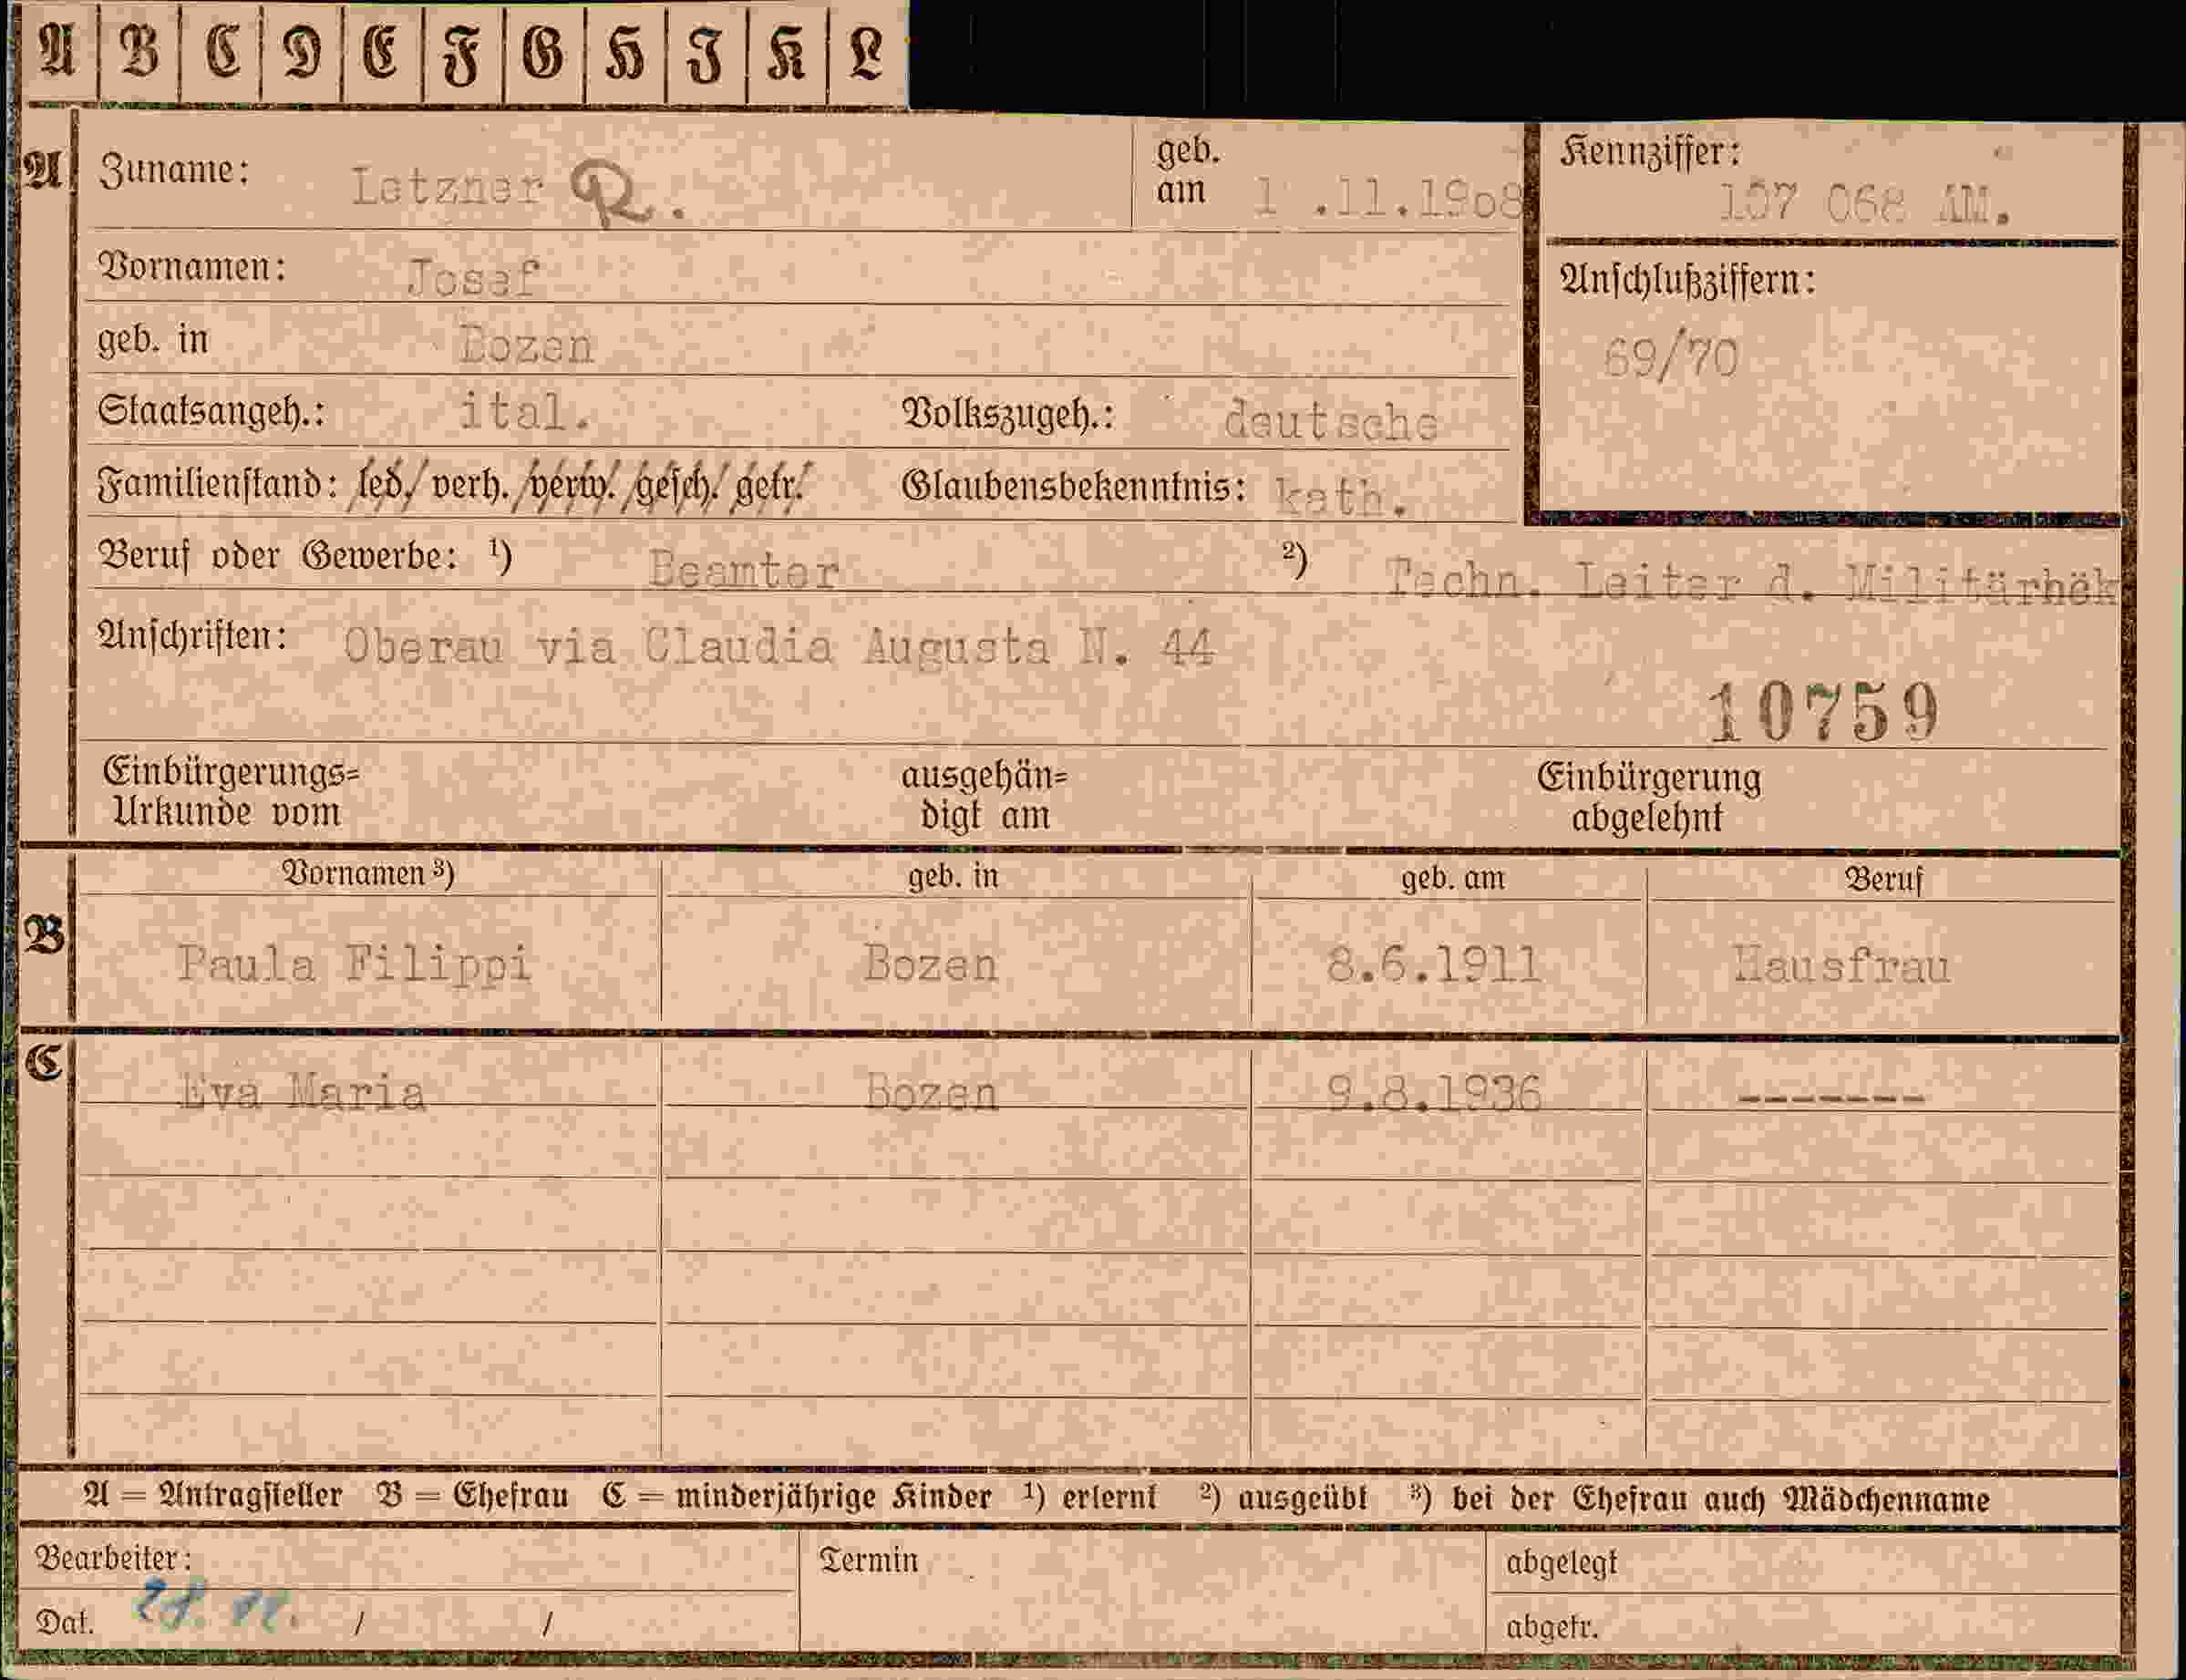 A B C D E F G H I K L
A Zuname: Letzner R. geb. am 1 .11.1908 Kennziffer: 107 068 AM.
Vornamen: Josef Anschlußziffern:
geb. in Bozen 69/70
Staatsangeh.: ital. Volkszugeh.: deutsche
Familienstand: led./ verh. /verw./ gesch./ getr. Glaubensbekenntnis: kath.
Beruf oder Gewerbe: ¹) Beamter ²) Techn. Leiter d. Militärbäk
Anschriften: Oberau via Claudia Augusta N. 44
10759
Einbürgerungs= ausgehän= Einbürgerung
Urkunde vom digt am abgelehnt
Vornamen ³) geb. in geb. am Beruf
B Paula Filippi Bozen 8.6.1911 Hausfrau
C Eva Maria Bozen 9.8.1936 -------
A = Antragsteller B = Ehefrau C = minderjährige Kinder ¹) erlernt ²) ausgeübt ³) bei der Ehefrau auch Mädchenname
Bearbeiter: Termin abgelegt
Dat. / / abgetr.